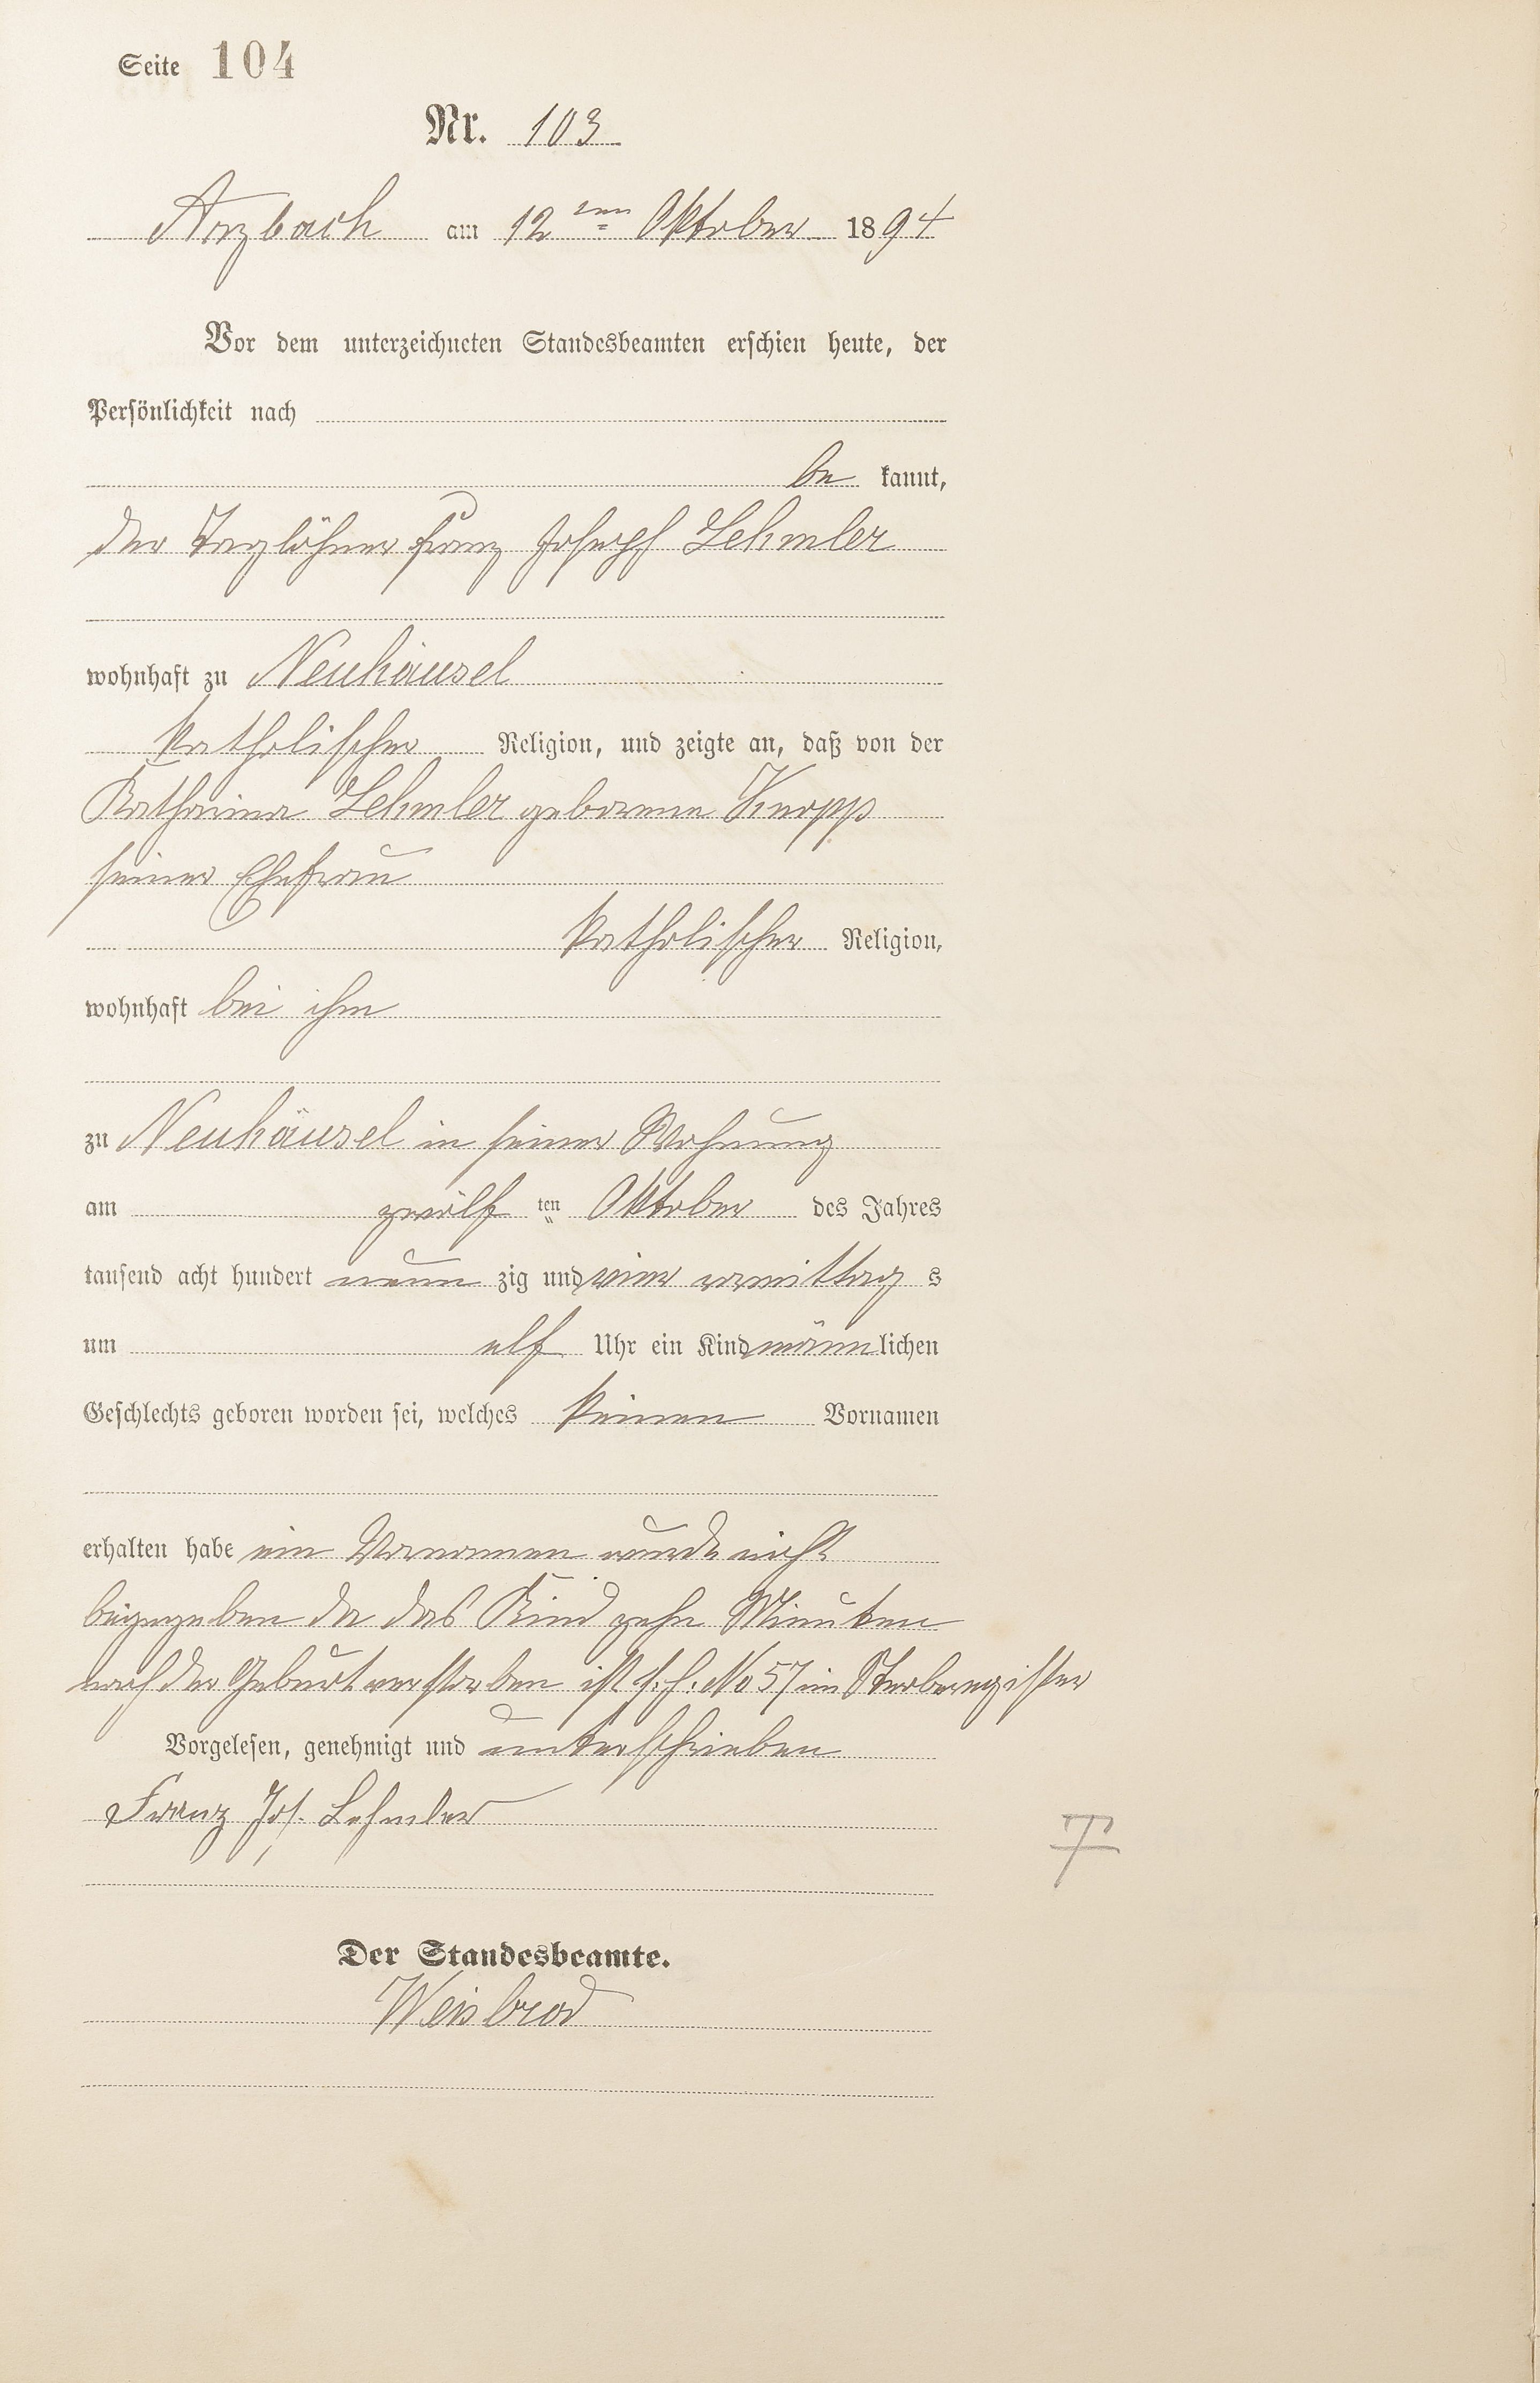 Seite 104
Nr. 103
Arzbach am 12ten Oktober 1894
Vor dem unterzeichneten Standesbeamten erschien heute, der
Persönlichkeit nach
be kannt,
der Taglöhner Franz Joseph Lehmler
wohnhaft zu Neuhäusel
katholischer Religion, und zeigte an, daß von der
Katharina Lehmler geborene Knopp
seiner Ehefrau
katholischer Religion,
wohnhaft bei ihm
zu Neuhäusel in seiner Wohnung
am zwölf ten Oktober des Jahres
tausend acht hundert neun zig und vier vormittag s
um elf Uhr ein Kind männ lichen
Geschlechts geboren worden sei, welches keinen Vornamen
erhalten habe ein Vornamen wurde nicht
beigegeben da das Kind zehn Minuten
nach der Geburt verstorben ist s. h. No 57 im Sterberegister
Vorgelesen, genehmigt und unterschrieben
Franz Jos. Lehmler
Der Standesbeamte.
Weisbrod